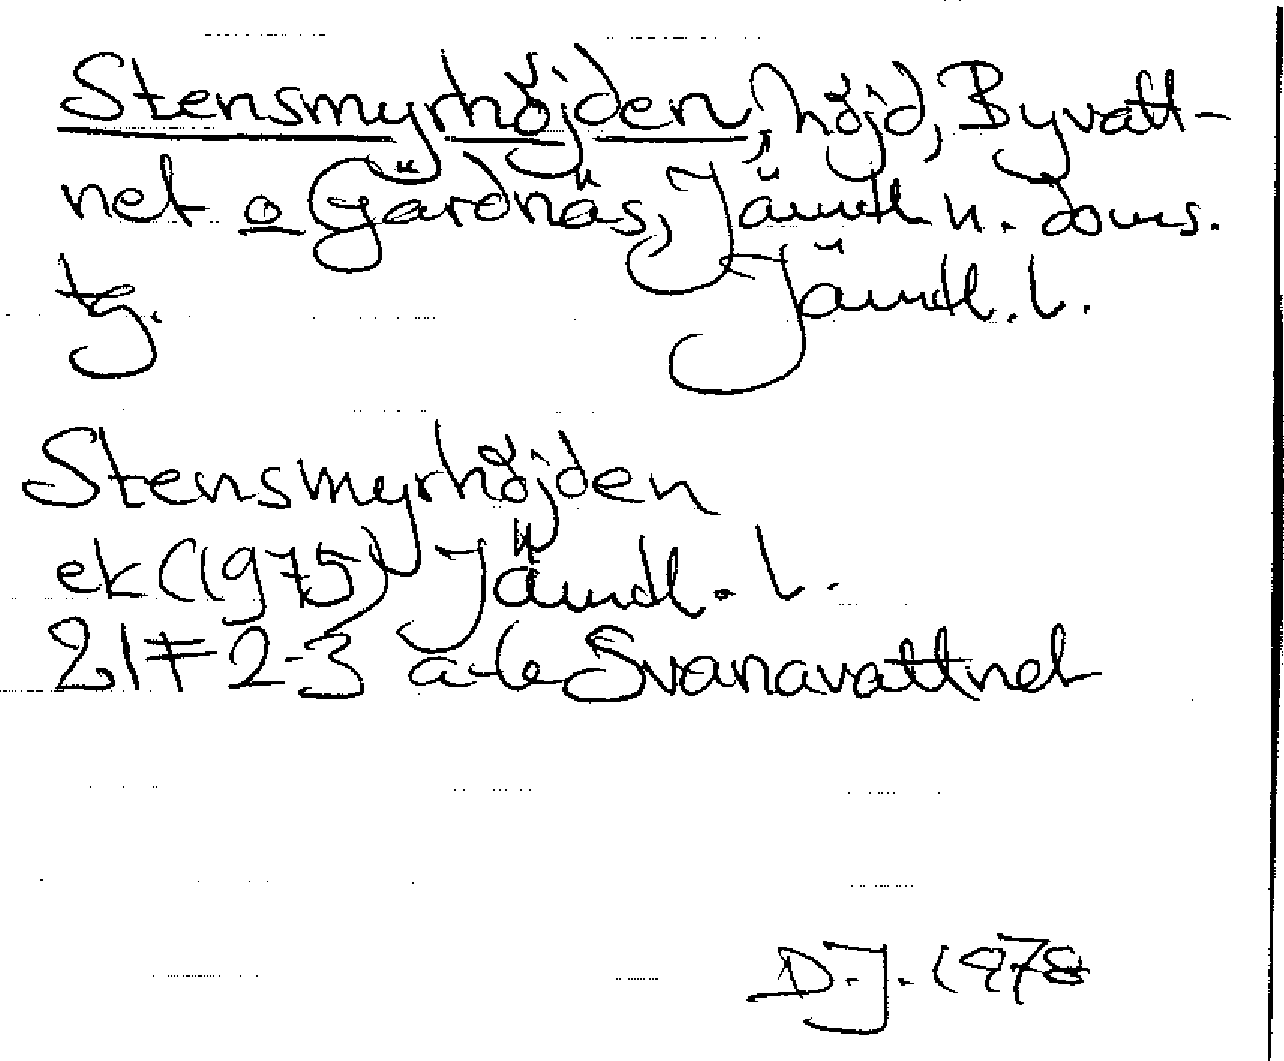 Stensmyrhöjden, höjd, Byvatt-
net o Gärdnäs, Jämtl n. doms.
tg. Jämtl. l.
Stensmyrhöjden
ek (1975) Jämtl. l.
21F 2-3 a-b Svanavattnet
D.J. 1978